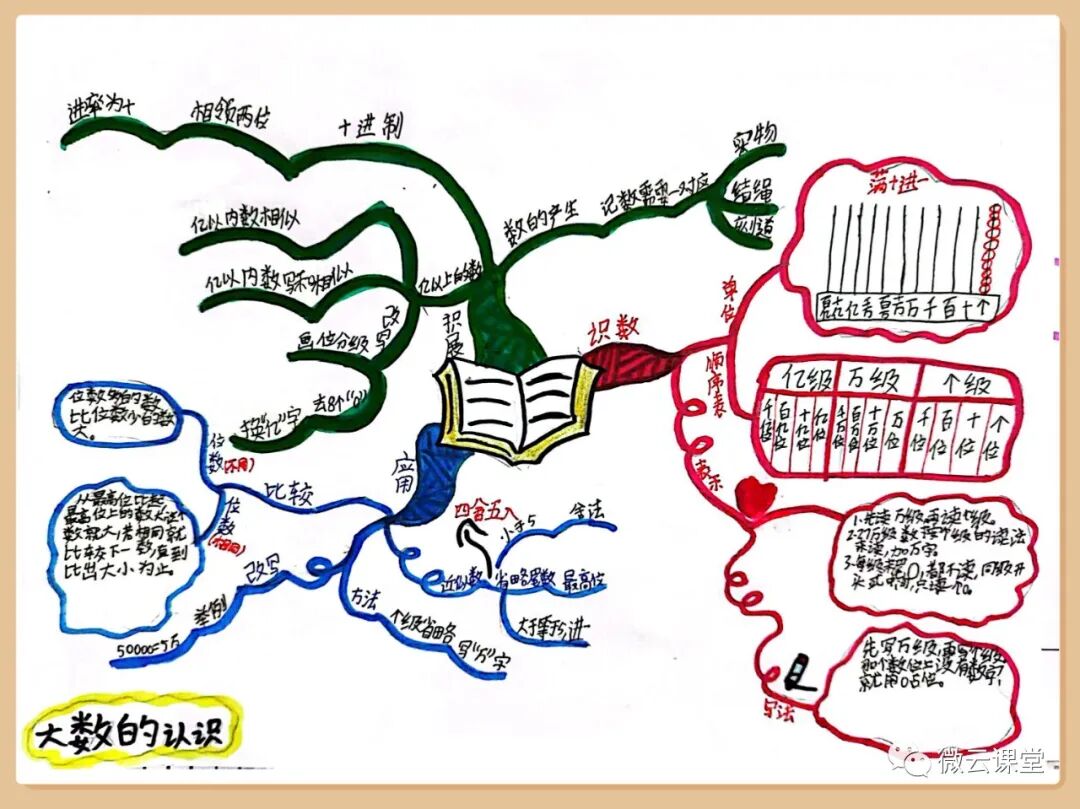 进率为十
相领两位
十进制
亿以内数相似
亿以内数写不相似
画位分级
改写
换"亿"字
去8个"0"
亿以上的数
积尾
数的产生
记数需要一对应
实物
结绳
刻道
识数
单位
满十进一
万千百十个
顺序表
亿级 万级 个级
千亿位 百亿位 十亿位 亿位 千万位 百万位 十万位 万位 千位 百位 十位 个位
表示
1.先读万级,再读个级。
2.万级数按个级的读法
来读,加万字。
先写万级,再写个级,
那个数位上没有数字,
就用0占位。
写法
应用
位数多的数
比位数少的数
大。
位数(不同)
比较
位数(相同)
从最高位比起
最高位上的数大这个
数就大,若相同就
比较下一数,直到
比出大小为止。
改写
举例
50000=5万
方法
个级省略
写"万"字
近似数
四舍五入
省略尾数
最高位
小于5
舍法
大于等于5进一
大数的认识
微云课堂